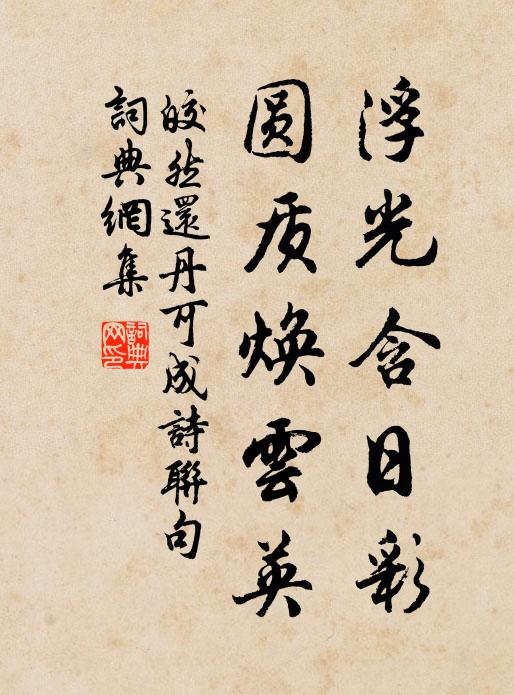 浮光含日彩
圆质焕雲英
皎然還丹可成詩聯句
詞典網集
詞典
网印